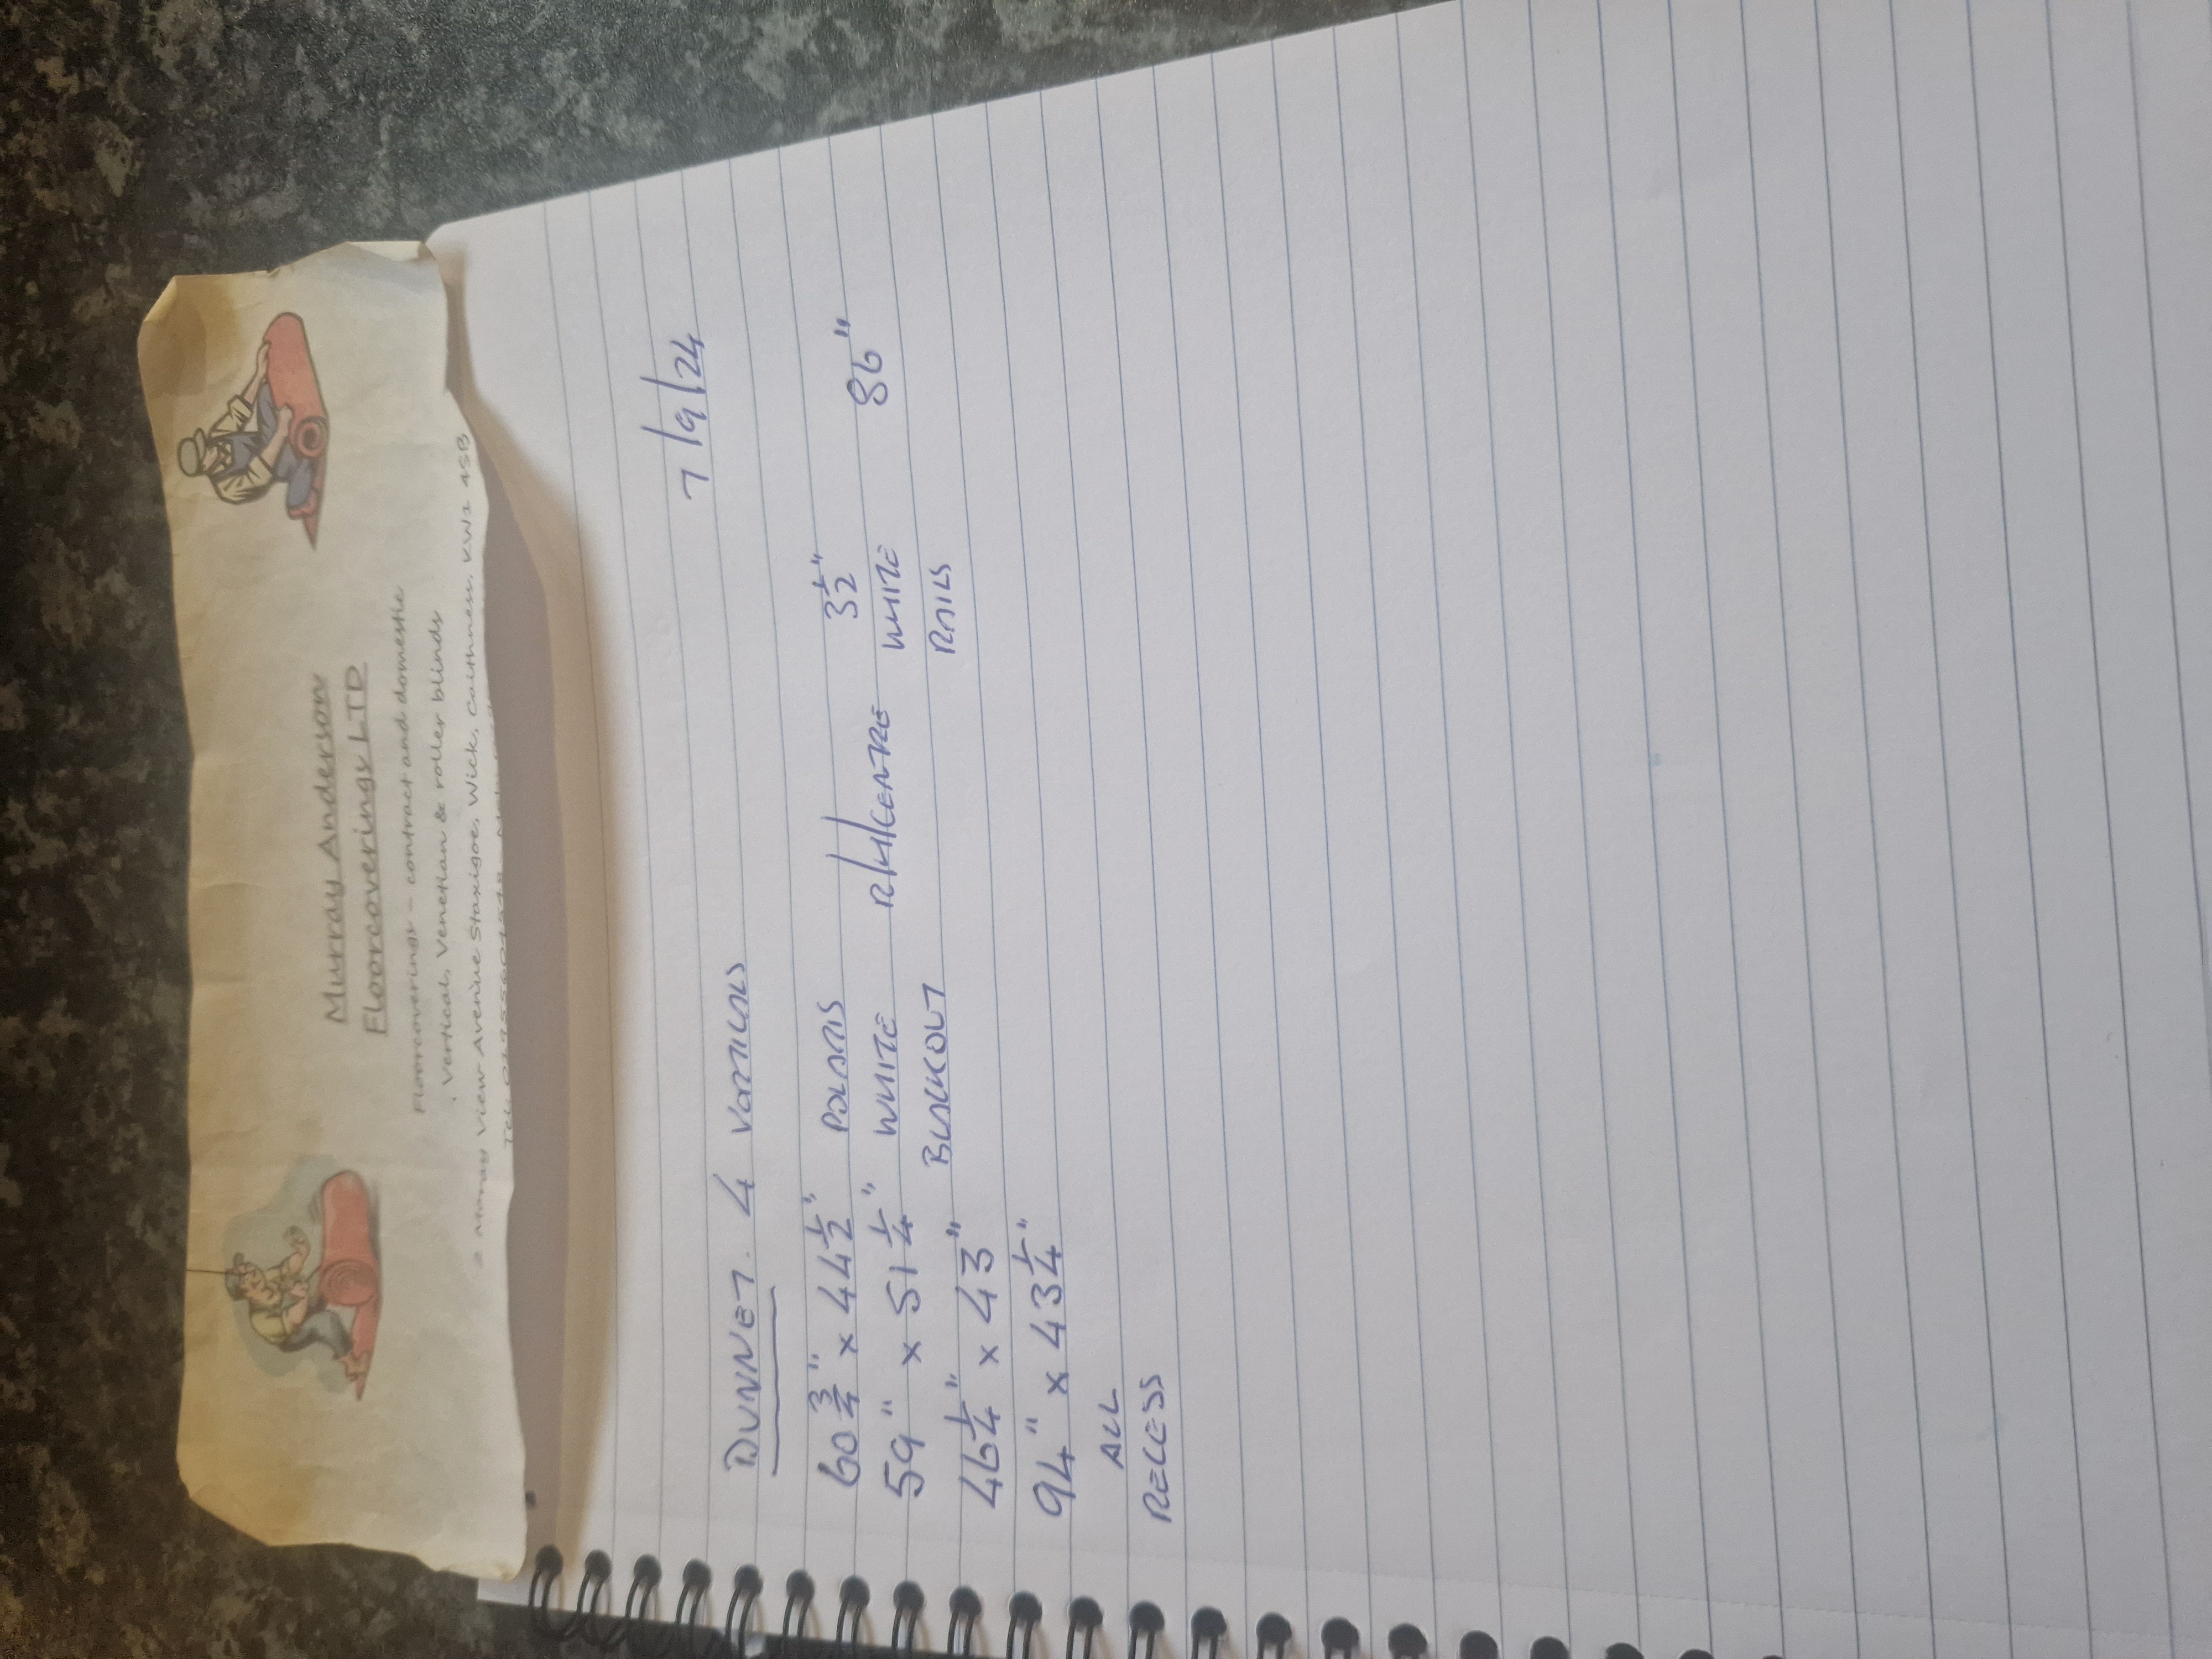 Murray Anderson
Floorcoverings LTD
Floorcoverings – contract and domestic
Vertical, Venetian & roller blinds
2 Moray View Avenue Staxigoe, Wick, Caithness, KW1 4SB
7/9/24
DUNNET. 4 VERTICALS
60 3/4" x 44 1/2" POLARIS 3 1/2"
59" x 51 1/4" WHITE R/H/CENTRE WHITE 86"
46 1/4" x 43" BLACKOUT RAILS
94" x 43 1/4"
ALL
RECESS